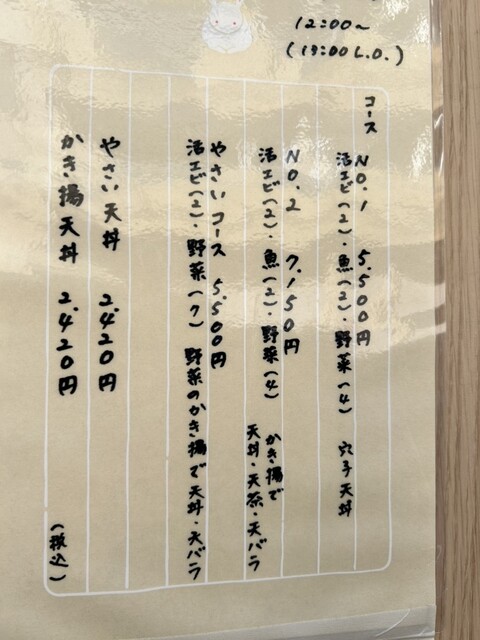 12:00~
(13:00 L.O.)
コース
NO.1 5.500円
活エビ(2)・魚(2)・野菜(4) 穴子天丼
NO.2 7.150円
活エビ(2)・魚(2)・野菜(4) かき揚で
天丼・天茶・天バラ
やさいコース 5.500円
活エビ(2)・野菜(7) 野菜のかき揚で天丼・天バラ
やさい天丼 2.420円
かき揚天丼 2.420円
(税込)